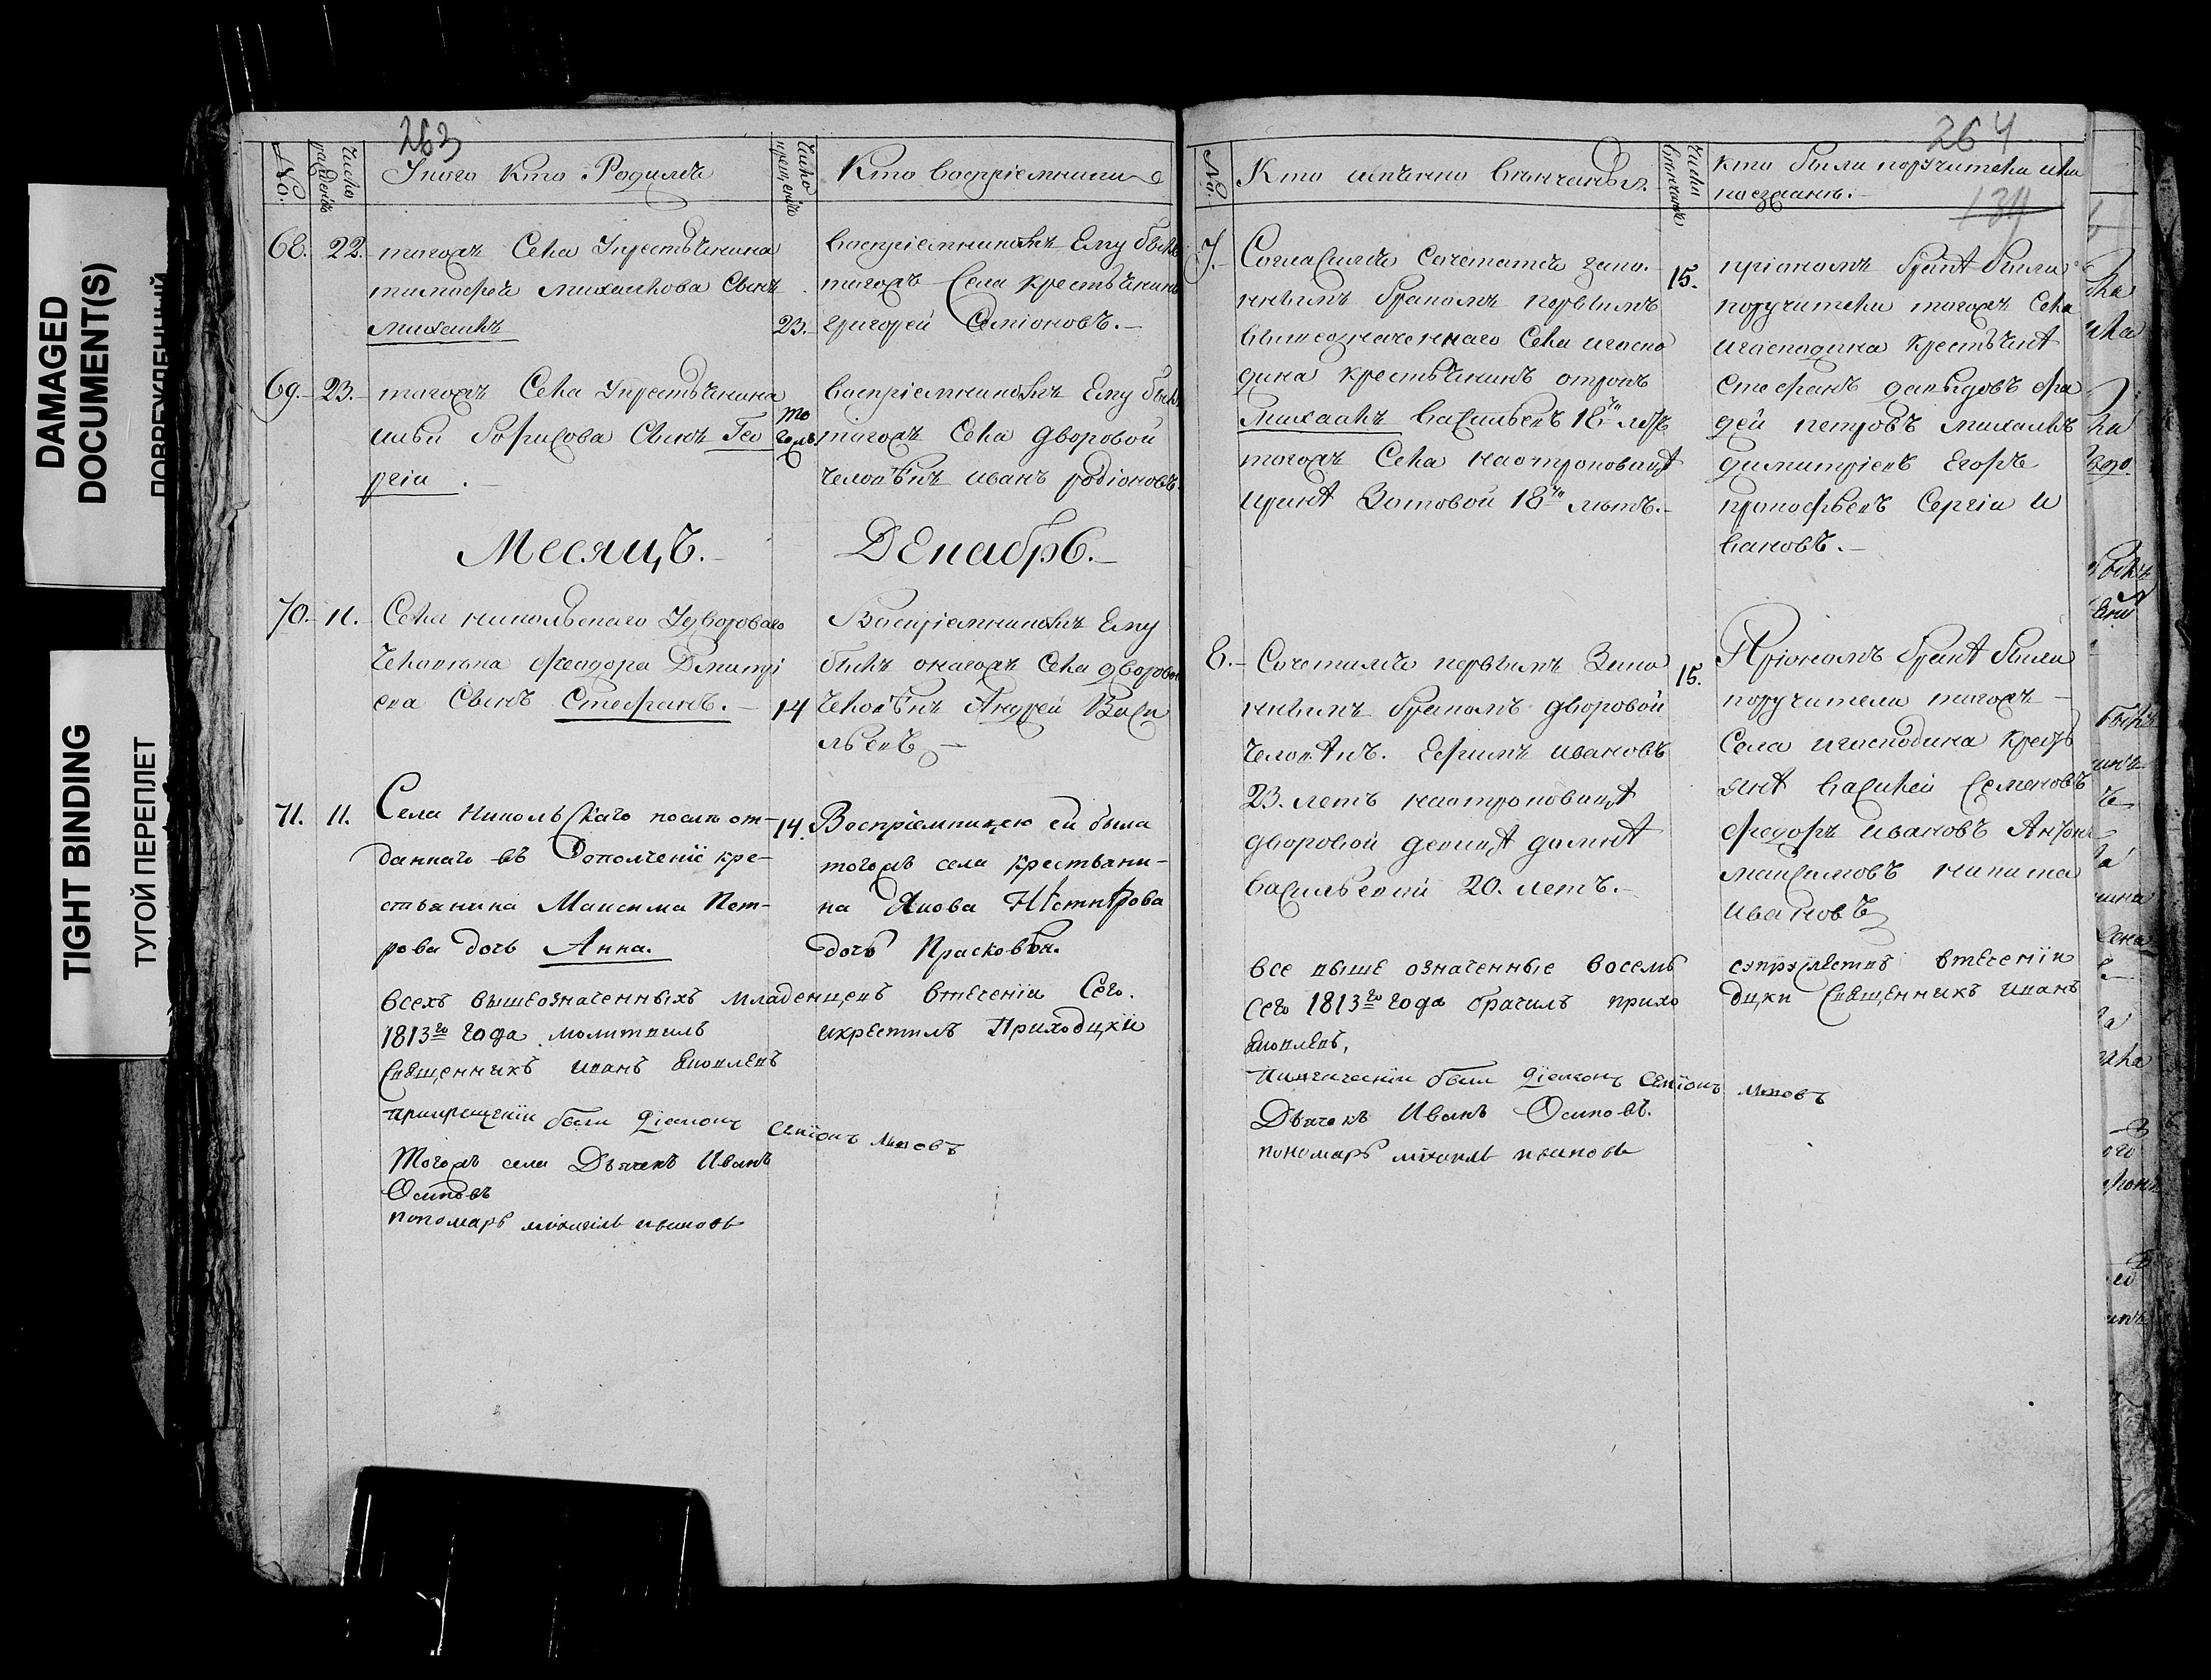 DAMAGED
DOCUMENT(S)
TIGHT BINDING
ТУГОЙ ПЕРЕПЛЕТ
263
№.
Число рожденія
Укого Кто Родился
Число крещенія
Кто воспріемники
68.
22.
тогожъ Села Укрестьянина
тимофея михаилова Сынъ
михаилъ
23.
Воспріемникомъ Ему былъ
тогожъ Села крестьянинъ
григорей Семіоновъ.
69.
23.
тогожъ Села Укрестьянина
ильи борисова Сынъ Гео
ргіи
того жъ
Воспріемникомъ Ему былъ
тогожъ Села дворовой
человѣкъ иванъ родіоновъ.
Месяцъ.
Декабрь.
70.
11.
Села никольскаго Удвороваго
человѣка феодора Дмитрі
ева Сынъ Стефанъ.
14
Воспріемникомъ Ему
былъ оногожъ Села дворовой
человѣкъ Андрей Васи
льевъ
71.
11.
Села Никольскаго послѣ от-
даннаго въ Ополченіе кре-
стьянина Максима Пет-
рова дочь Анна.
14.
Воспріемницею ей была
тогожъ села крестьяни-
на Якова
дочь Прасковья.
всехъ вышеозначенныхъ младенцевъ втеченіи Сего.
1813го года молитвилъ икрестилъ Приходцкіи
Священникъ иванъ яковлевъ
прикрещеніи были діаконъ Семіонъ
Тогожъ села Дьячекъ Иванъ
Осиповъ
пономарь михаилъ ивановъ
264
134
№.
Кто имѣнно Вѣнчаны.
Число Вѣнчанія
кто были поручители или
поезжане.
7.
Согласился Сочетатся зако.
ннымъ бракомъ первымъ
вышеозначеннаго Села игоспо
дина крестьянинъ отрокъ
михаилъ васильевъ 18ти летъ
тогожъ Села наотроковицѣ
иринѣ Зотовой 18ти летъ.
15.
пріономъ бракѣ были
поручители тогожъ Села
игосподина крестьянѣ
Стефанъ давыдовъ фа
дей петровъ михаилъ
димитріевъ Егоръ
прокофьевъ Сергіи и
вановъ.
8.
Сочетался первымъ Зако
ннымъ бракомъ дворовой
человѣкъ. Ефимъ ивановъ
23. летъ наотроковицѣ
дворовой девицѣ
васильевой 20. летъ.
15.
Пріономъ бракѣ были
поручители тогожъ
Села игосподина крестъ
янѣ василей семеновъ
федоръ ивановъ Антонъ
максимовъ никита
ивановъ
все выше означенные восемь супружествъ втеченіи
сего 1813го года брачилъ прихо дцки Священникъ иванъ
яковлевъ,
привенчаніи были діаконъ Семіонъ
Дьячекъ Иванъ Осиповъ.
пономарь михаилъ ивановъ